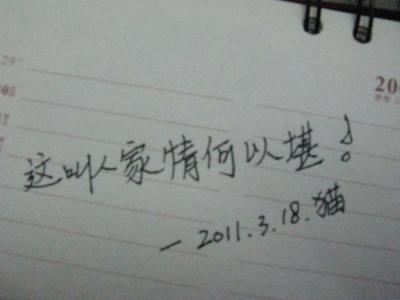 29
30
200
这叫人家情何以堪!
—2011.3.18.猫